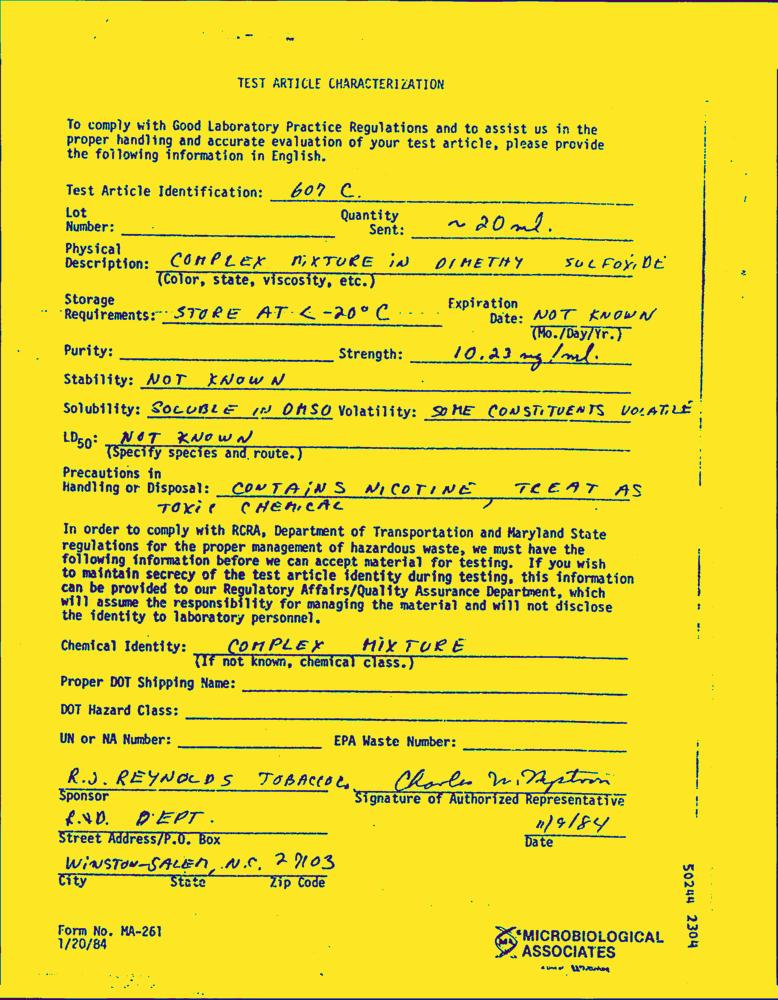 TEST ARTICLE CHARACTERIZATION
To comply with Good Laboratory Practice Regulations and to assist us in the
proper handling and accurate evaluation of your test article, please provide
the following information in English.
Test Article Identification: 607 C.
Lot Number: Quantity Sent: ~ 20 ml.
Physical Description: COMPLEX MIXTURE IN DIMETHY SULFOXIDE
(Color, state, viscosity, etc.)
Storage Requirements: STORE AT < -20° C Expiration Date: NOT KNOWN
(Mo./Day/Yr.)
Purity: Strength: 10.23 mg/ml.
Stability: NOT KNOWN
Solubility: SOLUBLE IN DMSO Volatility: SOME CONSTITUENTS VOLATILE
LD50: NOT KNOWN
(Specify species and route.)
Precautions in
Handling or Disposal: CONTAINS NICOTINE, TREAT AS
TOXIC CHEMICAL
In order to comply with RCRA, Department of Transportation and Maryland State
regulations for the proper management of hazardous waste, we must have the
following information before we can accept material for testing. If you wish
to maintain secrecy of the test article identity during testing, this information
can be provided to our Regulatory Affairs/Quality Assurance Department, which
will assume the responsibility for managing the material and will not disclose
the identity to laboratory personnel.
Chemical Identity: COMPLEX MIXTURE
(If not known, chemical class.)
Proper DOT Shipping Name:
DOT Hazard Class:
UN or NA Number: EPA Waste Number:
R.J. REYNOLDS TOBACCO Charles
Sponsor Signature of Authorized Representative
R.&D. DEPT. 11/9/84
Street Address/P.O. Box Date
WINSTON-SALEM, N.C. 27103
City State Zip Code
50244 2304
Form No. MA-261
1/20/84
MA MICROBIOLOGICAL
ASSOCIATES